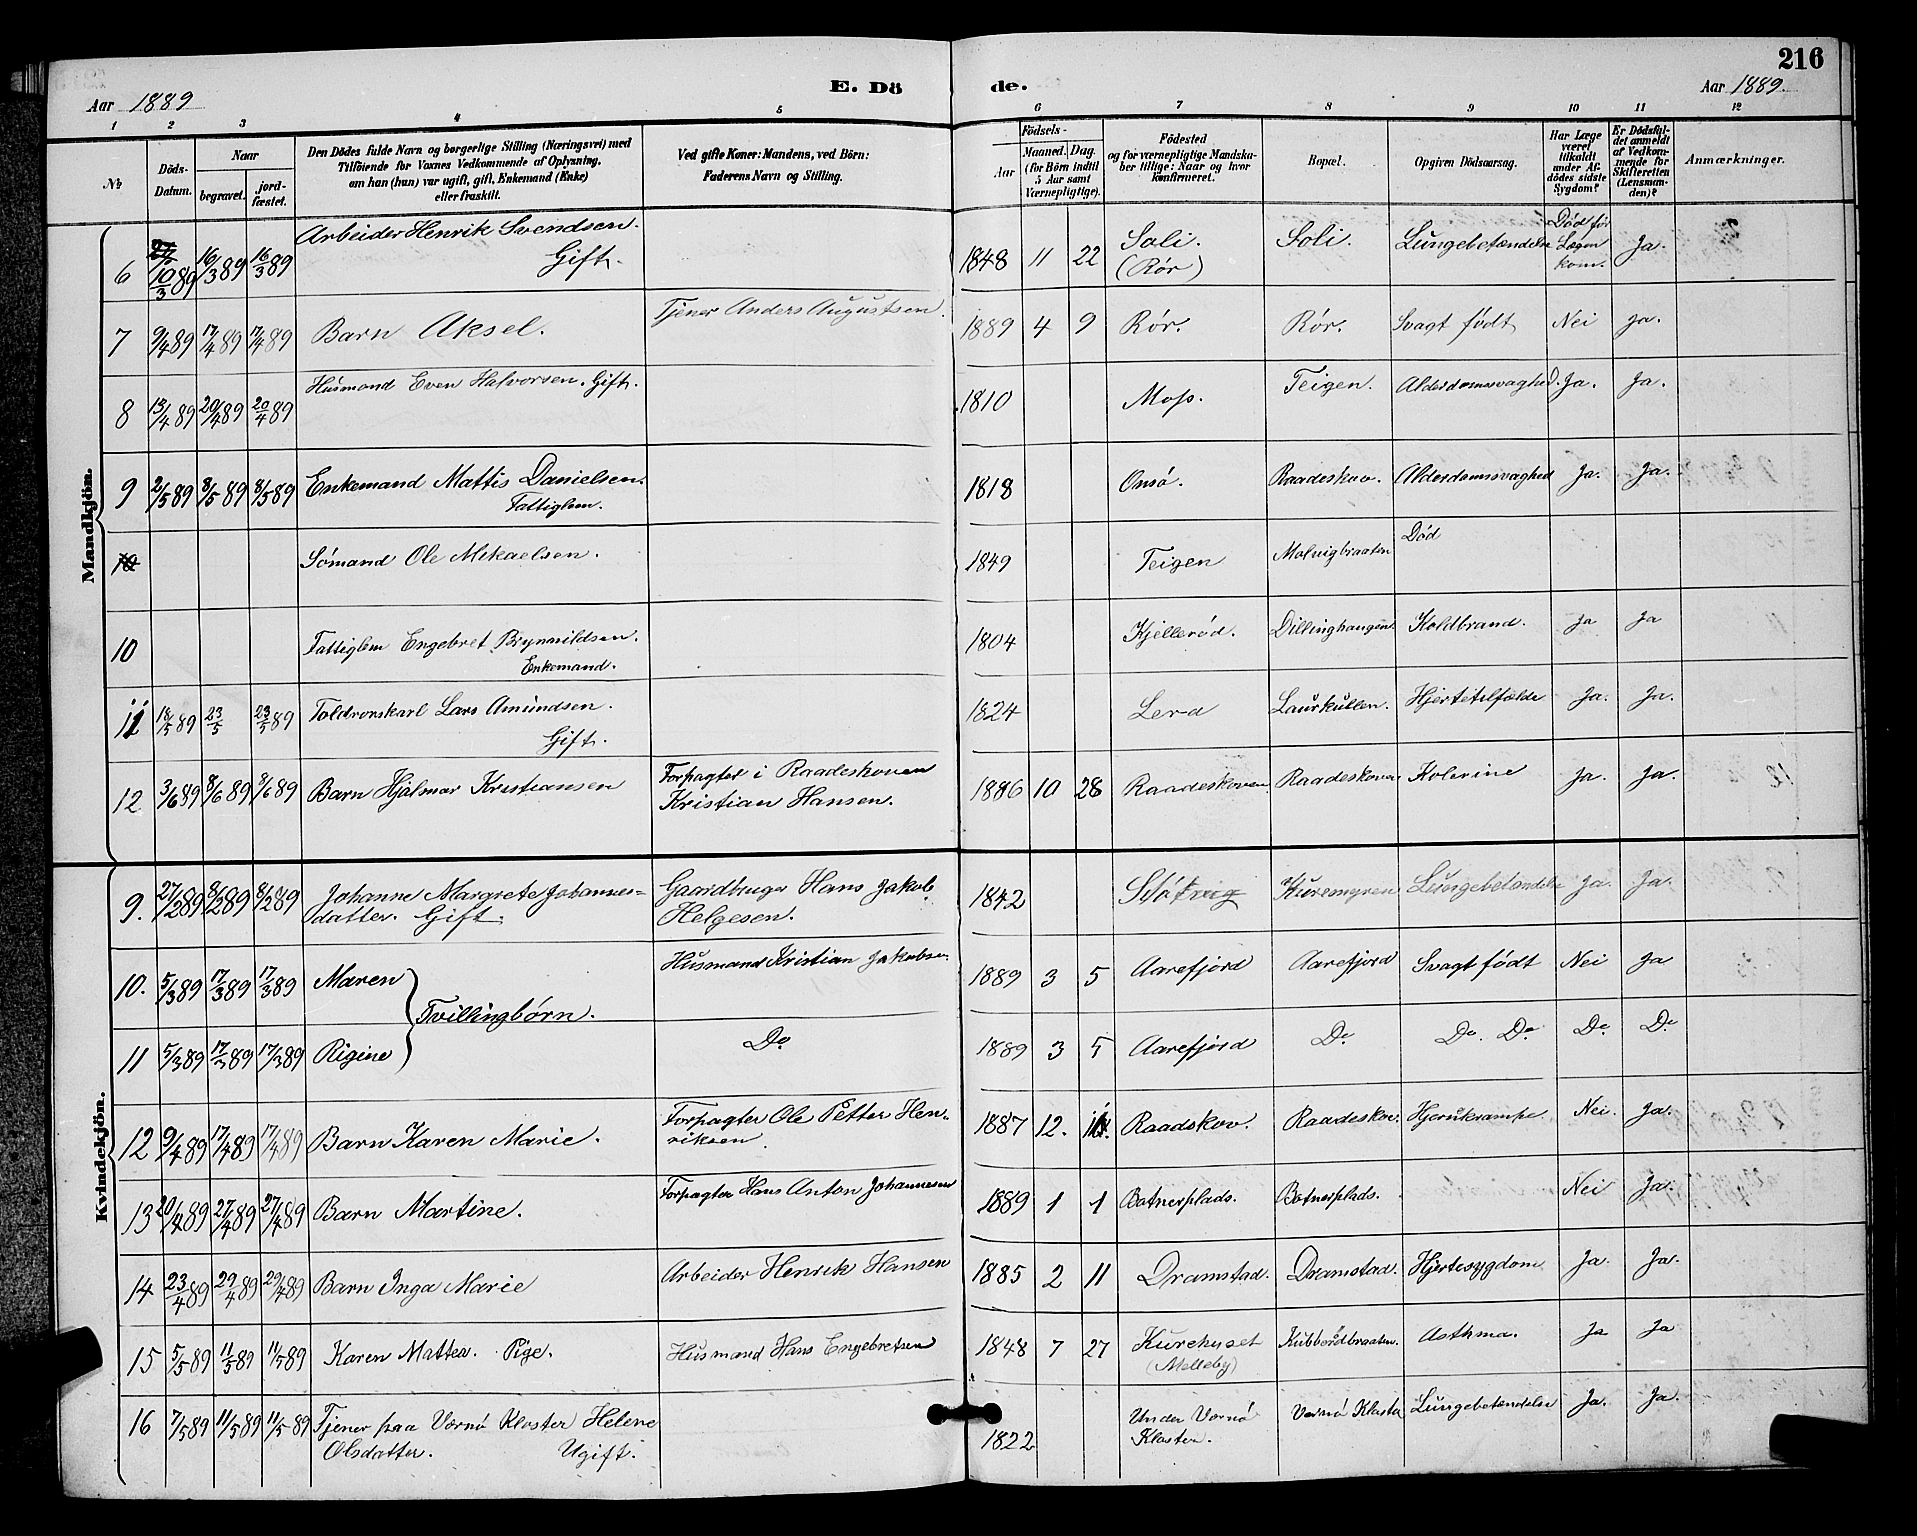 216
E. Dö de.
Aar 1889
Aar 1889.
1 2 3 4 5 6 7 8 9 10 11 12
№
Döds-Datum.
Naar
begravet.
jord-fæstet.
Den Dödes fulde Navn og borgerlige Stilling (Næringsvei) med
Tilföiende for Voxnes Vedkommende af Oplysning,
om han (hun) var ugift, gift, Enkemand (Enke)
eller fraskilt.
Ved gifte Koner: Mandens, ved Börn:
Faderens Navn og Stilling.
Födsels-
Aar
Maaned. Dag.
(for Börn indtil
5 Aar samt
Værnepligtige).
Födested
og for værnepligtige Mandska-
ber tillige: Naar og hvor
konfirmeret.
Bopæl.
Opgiven Dödsaarsag.
Har Læge
været
tilkaldt
under Af-
dödes sidste
Sygdom?
Er Dödsfal-
det anmeldt
af Vedkom-
mende for
Skifteretten
(Lensman-
den)?
Anmærkninger.
Mandkjön.
6 10/3 89 16/3 89 16/3 89 Arbeider Henrik Svendsen. Gift. 1848 11 22 Soli. (Rör) Soli. Lungebetændelse Död før Lægen kom. Ja.
7 9/4 89 17/4 89 17/4 89 Barn Aksel. Tjener Anders Augustsen. 1889 4 9 Rör. Rör. Svagt født Nei Ja.
8 13/4 89 20/4 89 20/4 89 Husmand Even Halvorsen. Gift. 1810 Moss. Teigen. Alderdomssvaghed. Ja. Ja.
9 2/5 89 8/5 89 8/5 89 Enkemand Mattis Danielsen. Fattiglem. 1818 Onsø. Raadeskov. Alderdomssvaghed Ja. Ja.
10 Sømand Ole Mikaelsen. 1849 Teigen Molvigbraaten Død
10 Fattiglem Engebret Brynnildsen. Enkemand. 1804 Kjellerød. Dillinghaugen. Koldbrand. Ja Ja
11 18/5 89 23/5 23/5 89 Toldronskarl Lars Amundsen. Gift. 1824 Lera Laurkullen. Hjertetilfælde Ja. Ja.
12 3/6 89 8/6 89 8/6 89 Barn Hjalmar Kristiansen Forpagter i Raadeskoven Kristian Hansen. 1886 10 28 Raadeskoven Raadeskoven Kolerine Ja. Ja.
Kvindekjön.
9. 27/2 89 8/2 89 8/2 89 Johanne Margrete Johannes=datter. Gift. Gaardbruger Hans Jakob Helgesen. 1842 Kuremyren Lungebetændelse Ja. Ja.
10. 5/3 89 17/3 89 17/3 89 Maren Tvillingbørn. Husmand Kristian Jakobsen. 1889 3 5 Aarefjord Aarefjord Svagt født Nei Ja
11 5/3 89 17/3 89 17/3 89 Rigine Do 1889 3 5 Aarefjord Do. Do. Do Do Do
12 9/4 89 17/4 89 17/4 89 Barn Karen Marie. Forpagter Ole Petter Hen-riksen. 1887 12. Raadskov. Raadeskov. Hjernekrampe. Nei. Ja.
13 20/4 89 27/4 89 27/4 89 Barn Martine. Forpagter Hans Anton Johannesen 1889 1 1 Botnerplads. Botnerplads. Nei Ja.
14 23/4 89 29/4 89 29/4 89 Barn Inga Marie Arbeider Henrik Hansen 1885 2 11 Dramstad. Dramstad. Hjertesygdom Ja. Ja.
15 5/5 89 11/5 89 11/5 89 Karen Mattea. Pige. Husmand Hans Engebretsen 1848 7 27 Kurehuset (Melleby) Kubberødbraaten. Asthma. Ja Ja
16 7/5 89 11/5 89 11/5 89 Tjener paa Værnø Kloster Helene Olsdatter. Ugift. 1822 Under Værnø Kloster. Værnø Kloster Lungebetændelse Ja. Ja.